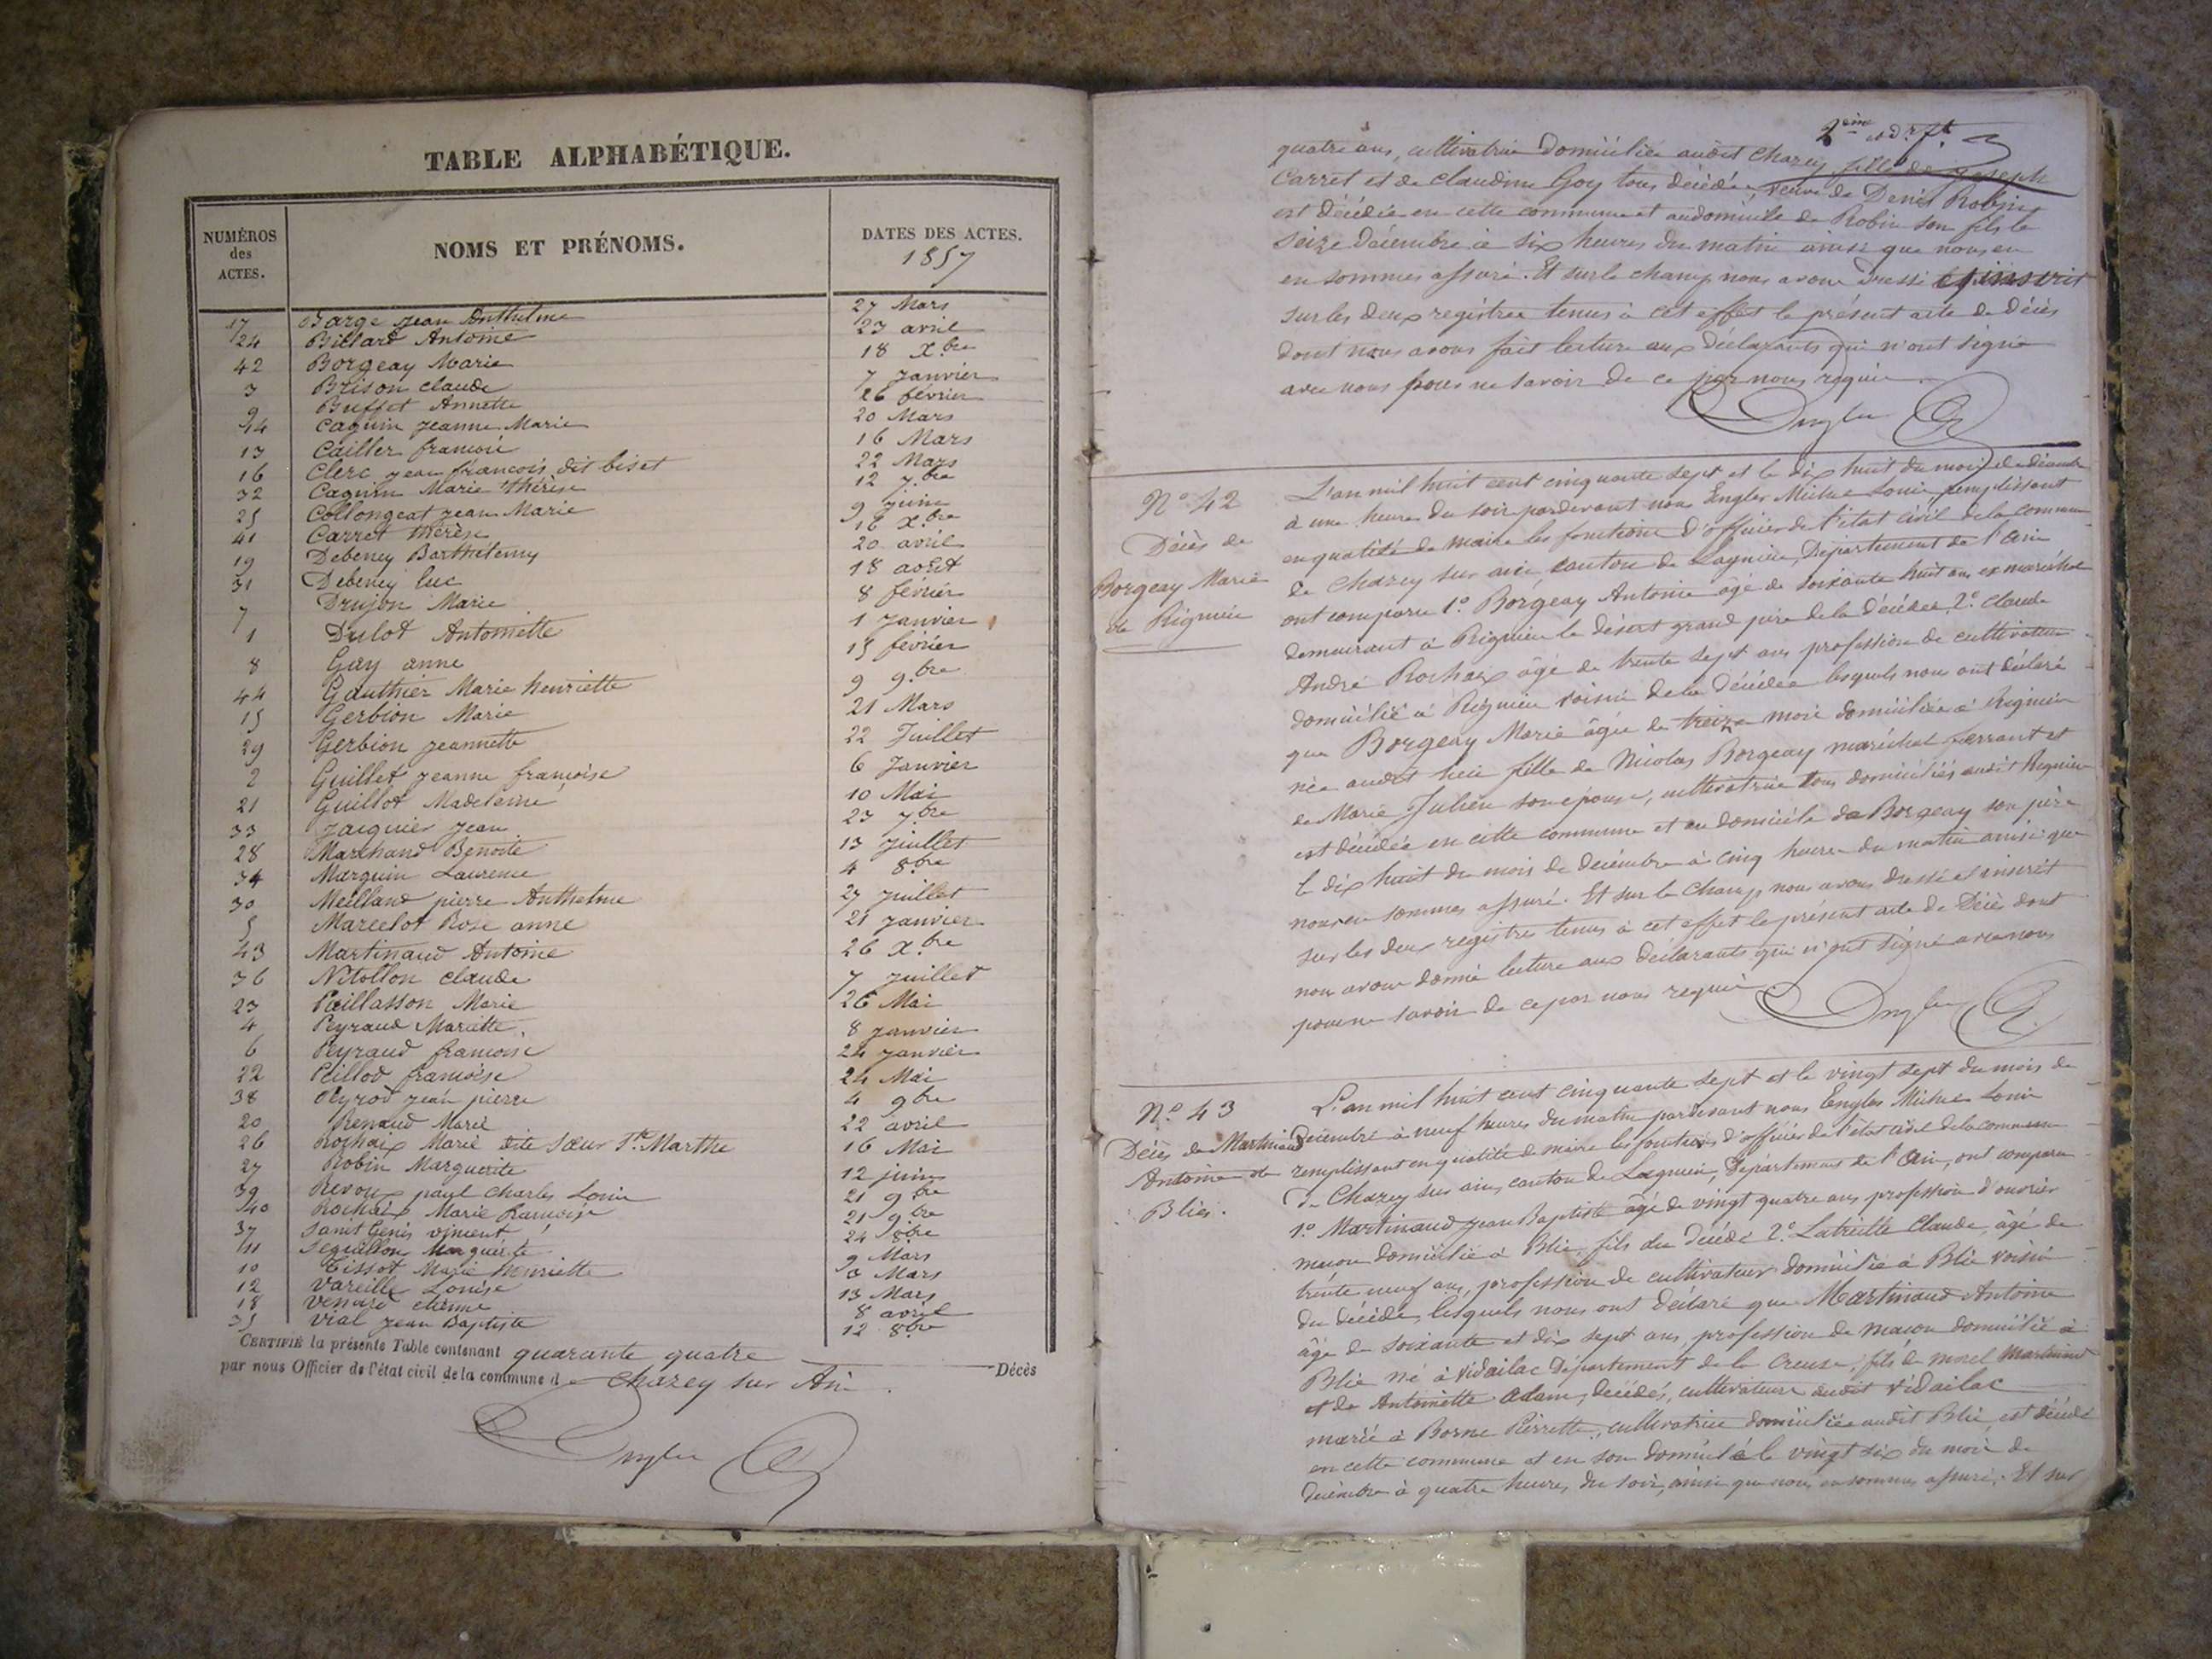 TABLE ALPHABÉTIQUE.
NUMÉROS des ACTES.
NOMS ET PRÉNOMS.
DATES DES ACTES.
1857
17 Barge Jean Anthelme 27 Mars
24 Billard Antoine 23 avril
42 Borgeay Marie 18 Xbre
3 Brison Claude 7 Janvier
9 Buffet Annette 26 février
14 Caquin Jeanne Marie 20 Mars
13 Cailler françois 16 Mars
16 Clerc jean françois dit biset 22 Mars
32 Caquin Marie thérèse 12 7bre
25 Collongeat Jean Marie 9 juin
41 Carret thérèse 16 Xbre
19 Debeney Barthélemy 20 avril
31 Debeney luc 18 août
7 Drujon Marie 8 février
1 Dulot Antoinette 1 Janvier
8 Guy anne 15 février
44 Gauthier Marie henriette 9 9bre
15 Gerbion Marie 21 Mars
29 Gerbion jeannette 22 Juillet
2 Guillet jeanne françoise 6 Janvier
21 Guillot Madelaine 10 Mai
33 Jacquier Jean 23 7bre
28 Marchand Benoite 13 juillet
34 Marguin Laurence 4 8bre
30 Meilland pierre Anthelme 27 juillet
5 Marcelot Rose anne 21 janvier
43 Martinaud Antoine 26 Xbre
36 Nitollon claude 7 juillet
23 Paillasson Marie 26 Mai
4 Peyraud Mariette. 8 janvier
6 Peyraud françoise 24 janvier
22 Peillod françoise 24 Mai
38 Peyrod jean pierre 4 9bre
20 Renaud Marie 22 avril
26 Rochaix Marie dite sœur Ste Marthe 16 Mai
27 Robin Marguerite 12 juin
39 Revoux paul Charles Louis 21 9bre
40 Rochaix Marie françoise 21 9bre
37 Sanit Genis vincent 24 8bre
11 Seguillon Marguerite 9 Mars
10 Tissot Marie henriette 8 Mars
12 Vareille Louise 13 Mars
18 Venard etienne 8 avril
35 Vial jean Baptiste 12 8bre
CERTIFIÉ la présente Table contenant quarante quatre Décès
par nous Officier de l'état civil de la commune de Chazey sur Ain.
Engler
2ème et dr ft.
quatre ans, cultivatrice domiciliée audit Chazey fille de joseph
Carret et de claudine Goy tous décédés, veuve de Denis Robin
est décédée en cette commune et au domicile de Robin son fils le
seize décembre à six heures du matin ainsi que nous en
en sommes assuré. Et sur le champ nous avons dressé et inscrit
sur les deux registres tenus à cet effet le présent acte de décès
dont nous avons fait lecture aux déclarants qui n'ont signé
avec nous pour ne savoir de ce par nous requis.
Engler
N° 42
Décès de
Borgeay Marie
de Rignieu
L'an mil huit cent cinquante sept et le dix huit du mois de décembre
à une heure du soir pardevant nous Engler Michel Louis, remplissant
en qualité de maire les fonctions d'officier de l'état civil de la commune
de Chazey sur ain, canton de Lagnieu, Département de l'ain
ont comparu 1° Borgeay Antoine âgé de soixante huit ans ex maréchal
demeurant à Rignieu le désert grand père de la décédée, 2° Claude
André Rochaix âgé de trente sept ans profession de cultivateur
domicilié à Rignieu voisin de la décédée lesquels nous ont déclaré
que Borgeay Marie âgée de treize mois domiciliée à Rignieu
née audit lieu fille de Nicolas Borgeay maréchal ferrant et
de Marie Julien son epouse, cultivatrice tous domiciliés audit Rignieu
est décédée en cette commune et au domicile de Borgeay son père
le dix huit du mois de décembre à cinq heures du matin ainsi que
nous en sommes assuré. Et sur le champ nous avons dressé et inscrit
sur les deux registres tenus à cet effet le présent acte de Décès dont
nous avons donné lecture aux déclarants qui n'ont signé avec nous
pour ne savoir de ce par nous requis
Engler
N° 43
Décès de Martinaud
Antoine de
Blies.
L'an mil huit cent cinquante sept et le vingt sept du mois de
Décembre à neuf heures du matin pardevant nous Engler Michel Louis
remplissant en qualité de maire les fonctions d'officier de l'état civil de la commune
de Chazey sur ain, canton de Lagnieu, Département de l'Ain, ont comparu
1° Martinaud Jean Baptiste âgé de vingt quatre ans profession d'ouvrier
maçon domicilié à Blie, fils du décédé 2° Latreille Claude, âgé de
trente neuf ans, profession de cultivateur domicilié à Blie voisin
du décédé, lesquels nous ont déclaré que Martinaud Antoine
âgé de soixante et dix sept ans, profession de maçon domicilié à
Blie né à vidailac Département de la Creuse, fils de morel Martinaud
et de Antoinette Adam, décédés, cultivateurs audit vidailac
marié à Borne Pierrette, cultivatrice domiciliée audit Blie, est décédé
en cette commune et en son domicile le vingt six du mois de
décembre à quatre heures du soir, ainsi que nous en sommes assuré. Et sur